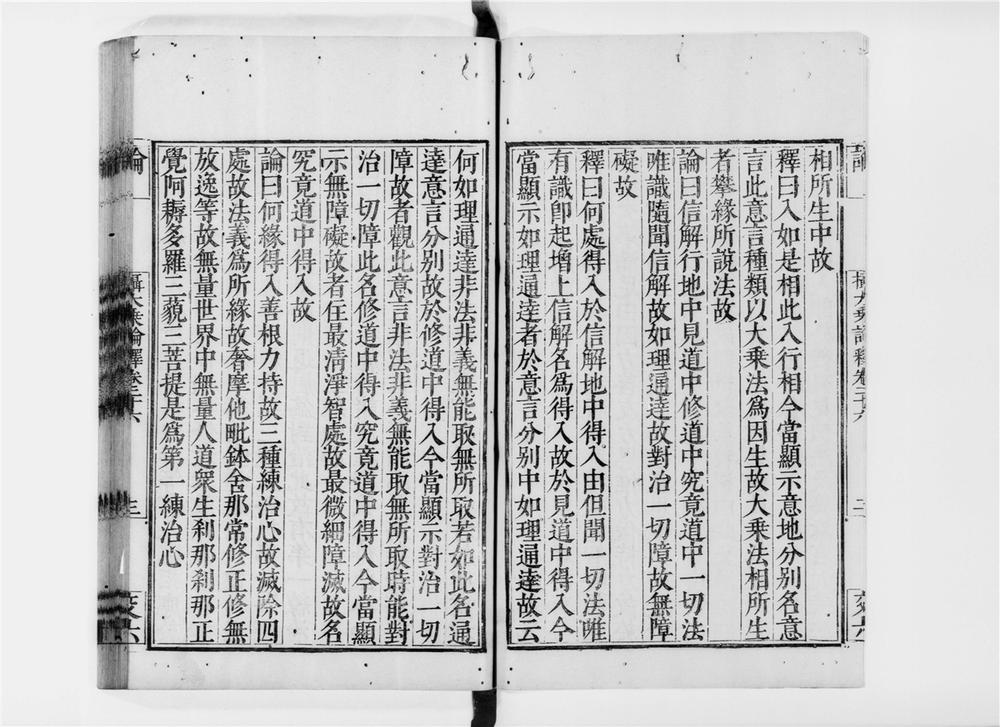 相所生中故
釋曰入如是相此入行相今當顯示意地分別名意
言此意言種類以大乗法爲因生故大乗法相所生
者攀緣所說法故
論曰信解行地中見道中修道中究竟道中一切法
唯識隨聞信解故如理通達故對治一切障故無障
礙故
釋曰何處得入於信解地中得入由但聞一切法唯
有識卽起增上信解名爲得入故於見道中得入今
當顯示如理通達者於意言分別中如理通達故云
何如理通達非法非義無能取無所取若如此名通
達意言分別故於修道中得入今當顯示對治一切
障故者觀此意言非法非義無能取無所取時能對
治一切障此名修道中得入究竟道中得入今當顯
示無障礙故者住最清淨智處故最微細障滅故名
究竟道中得入故
論曰何緣得入善根力持故三種練治心故滅除四
處故法義爲所緣故奢摩他毗鉢舍那常修正修無
放逸等故無量世界中無量人道衆生刹那刹那正
覺阿耨多羅三藐三菩提是爲第一練治心
論
攝大乗論釋卷六